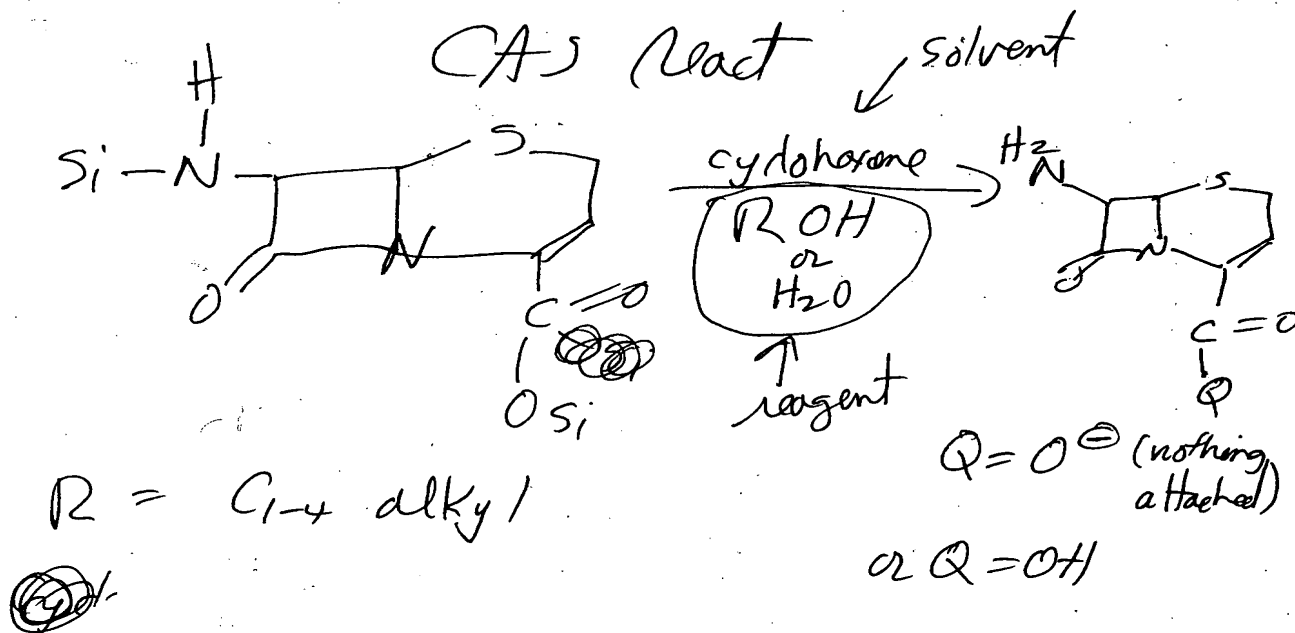 CAS React
solvent
H
Si-N
S
N
O
C=O
OSi
cyclohexane
ROH
or
H2O
reagent
H2N
S
N
O
C=O
Q
Q=O⊖ (nothing attached)
or Q=OH
R = C1-4 alkyl